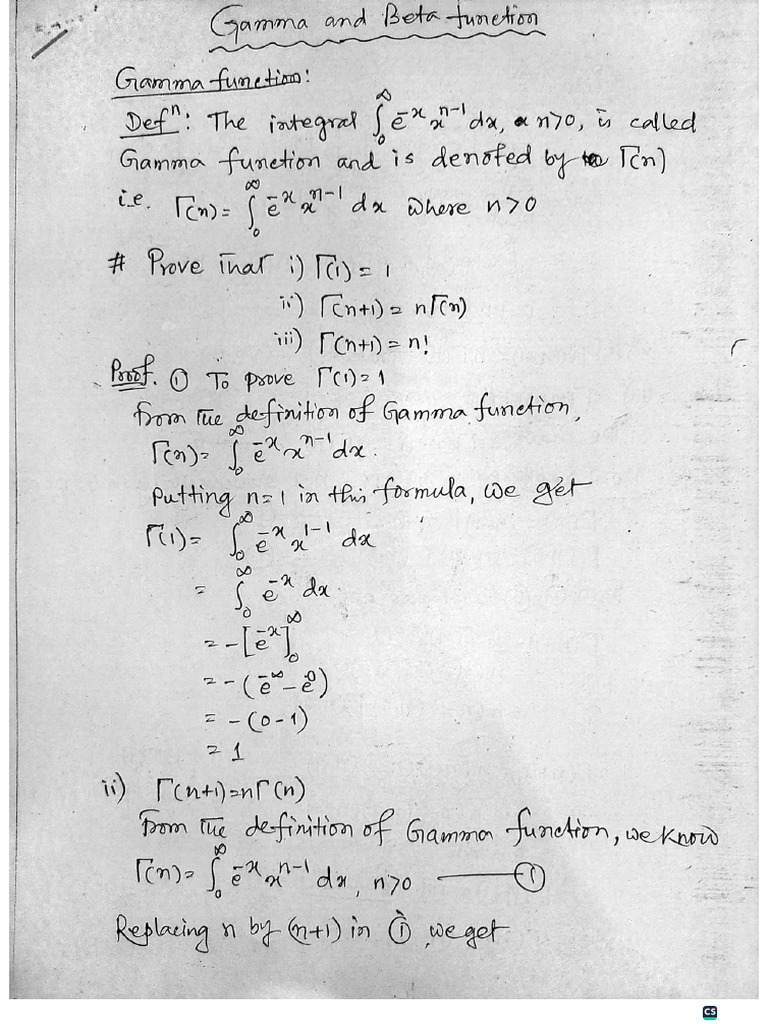 Gamma and Beta function
Gamma function:
Defⁿ: The integral ∫₀^∞ e^-x x^n-1 dx, n>0, is called
Gamma function and is denoted by Γ(n)
i.e. Γ(n) = ∫₀^∞ e^-x x^n-1 dx where n>0
# Prove that i) Γ(1) = 1
ii) Γ(n+1) = nΓ(n)
iii) Γ(n+1) = n!
Proof. ① To prove Γ(1)=1
from the definition of Gamma function,
Γ(n) = ∫₀^∞ e^-x x^n-1 dx.
Putting n=1 in this formula, we get
Γ(1) = ∫₀^∞ e^-x x^1-1 dx
= ∫₀^∞ e^-x dx
= -[e^-x]₀^∞
= -(e^-∞ - e^0)
= -(0-1)
= 1
ii) Γ(n+1)=nΓ(n)
from the definition of Gamma function, we know
Γ(n) = ∫₀^∞ e^-x x^n-1 dx, n>0 —— ①
Replacing n by (n+1) in ①, we get
CS